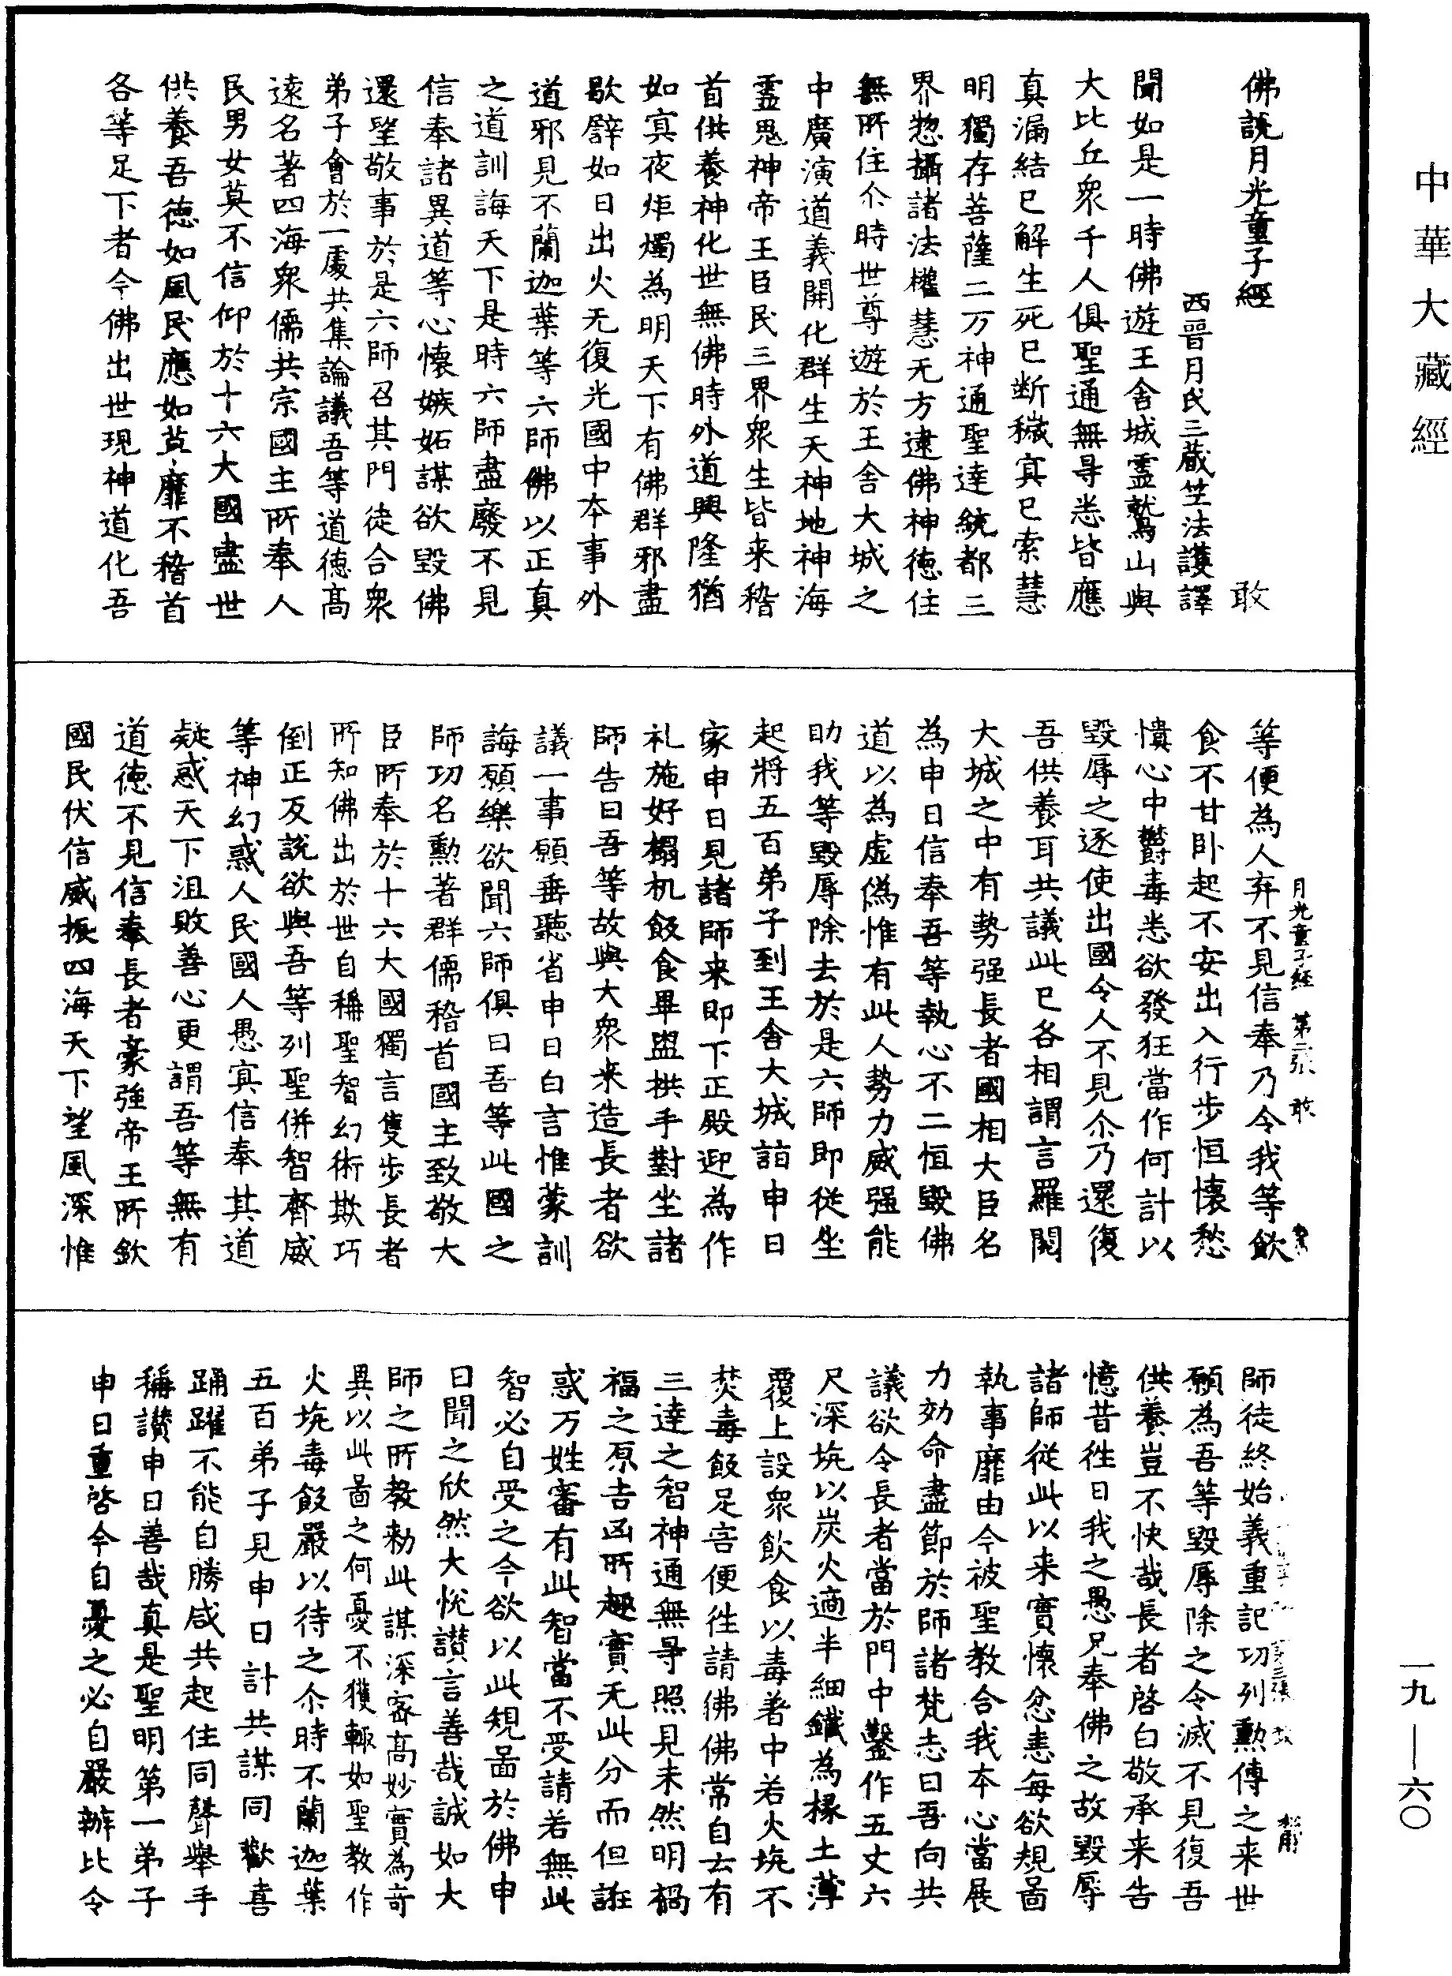 中華大藏經
佛說月光童子經
敢
西晉月氏三藏竺法護譯
聞如是一時佛遊王舍城靈鷲山與
大比丘衆千人俱聖通無㝵悉皆應
真漏結已解生死已断穢㝠已索慧
明獨存菩薩二万神通聖達統都三
界惣攝諸法權慧无方逮佛神德住
無所住尒時世尊遊於王舍大城之
中廣演道義開化群生天神地神海
靈鬼神帝王臣民三界衆生皆来稽
首供養神化世無佛時外道興隆猶
如㝠夜炬燭為明天下有佛群邪盡
歇譬如日出火无復光國中本事外
道邪見不蘭迦葉等六師佛以正真
之道訓誨天下是時六師盡廢不見
信奉諸異道等心懷嫉妬謀欲毀佛
還望敬事於是六師召其門徒合衆
弟子會於一處共集論議吾等道德高
遠名著四海衆儒共宗國主所奉人
民男女莫不信仰於十六大國盡世
供養吾德如風民應如草靡不稽首
各等足下者今佛出世現神道化吾
月光童子經 第二張 敢
等便為人弃不見信奉乃令我等飲
食不甘卧起不安出入行步恒懷愁
憒心中欝毒悉欲發狂當作何計以
毀辱之逐使出國令人不見尒乃還復
吾供養耳共議此已各相謂言羅閱
大城之中有勢强長者國相大臣名
為申日信奉吾等執心不二恒毀佛
道以為虛偽惟有此人勢力威强能
助我等毀辱除去於是六師即從坐
起將五百弟子到王舍大城詣申日
家申日見諸師来即下正殿迎為作
礼施好榻机飯食畢盥拱手對坐諸
師告曰吾等故與大衆来造長者欲
議一事願垂聽省申日白言惟蒙訓
誨願樂欲聞六師俱曰吾等此國之
師功名勲著群儒稽首國主致敬大
臣所奉於十六大國獨言隻步長者
所知佛出於世自稱聖智幻術欺巧
倒正反說欲與吾等列聖併智齊威
等神幻惑人民國人愚㝠信奉其道
疑惑天下沮敗善心更謂吾等無有
道德不見信奉長者豪強帝王所欽
國民伏信威振四海天下望風深惟
師徒終始義重記功列勲傳之来世
願為吾等毀辱除之令滅不見復吾
供養豈不快哉長者啓白敬承来告
憶昔往日我之愚兄奉佛之故毀辱
諸師從此以来實懷忿恚每欲規啚
執事靡由今被聖教合我本心當展
力効命盡節於師諸梵志曰吾向共
議欲令長者當於門中鑿作五丈六
尺深坑以炭火適半細鐵為椽土薄
覆上設衆飲食以毒著中若火坑不
焚毒飯足害便往請佛佛常自云有
三達之智神通無㝵照見未然明禍
福之原吉凶所趣實无此分而但誑
惑万姓審有此智當不受請若無此
智必自受之今欲以此規啚於佛申
日聞之欣然大悅讃言善哉誠如大
師之所教勑此謀深密高妙實為奇
異以此啚之何憂不獲輙如聖教作
火坑毒飯嚴以待之尒時不蘭迦葉
五百弟子見申日計共謀同歡喜
踊躍不能自勝咸共起住同聲舉手
稱讃申日善哉真是聖明第一弟子
申日重啓今自憂之必自嚴辦比令
一九—六〇